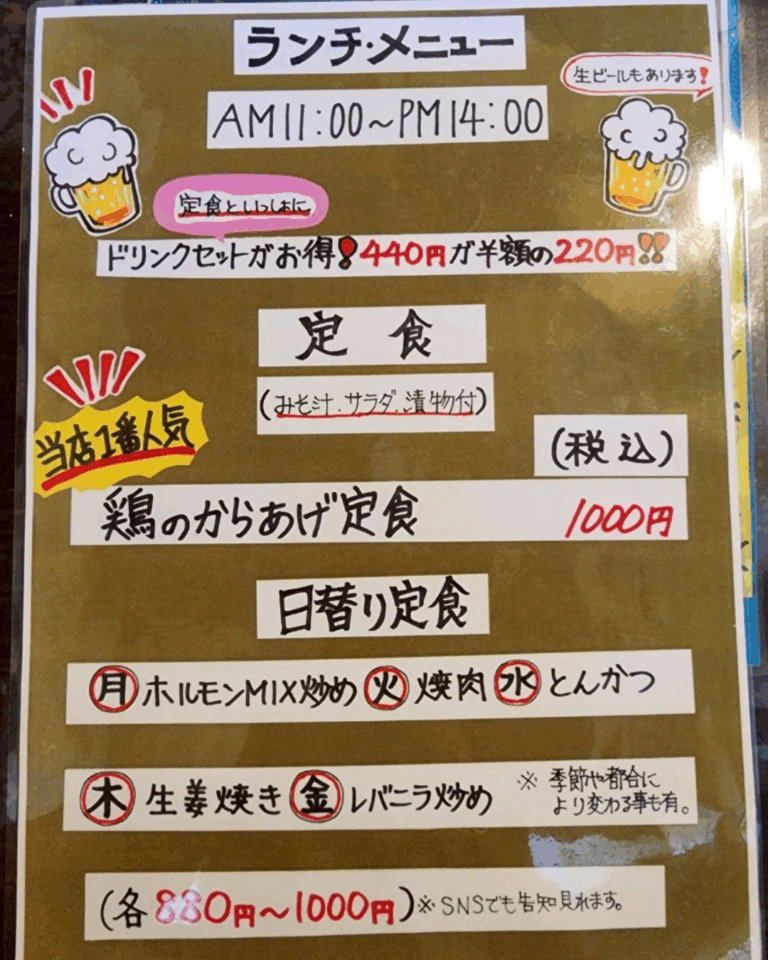 ランチ・メニュー
生ビールもあります!
AM11:00~PM14:00
定食といっしょに
ドリンクセットがお得!440円が半額の220円!!
定食
(みそ汁.サラダ.漬物付)
当店1番人気
(税込)
鶏のからあげ定食 1000円
日替り定食
月ホルモンMIX炒め 火焼肉 水とんかつ
木生姜焼き 金レバニラ炒め
※季節や都合に
より変わる事も有。
(各880円~1000円)※SNSでも告知見れます。